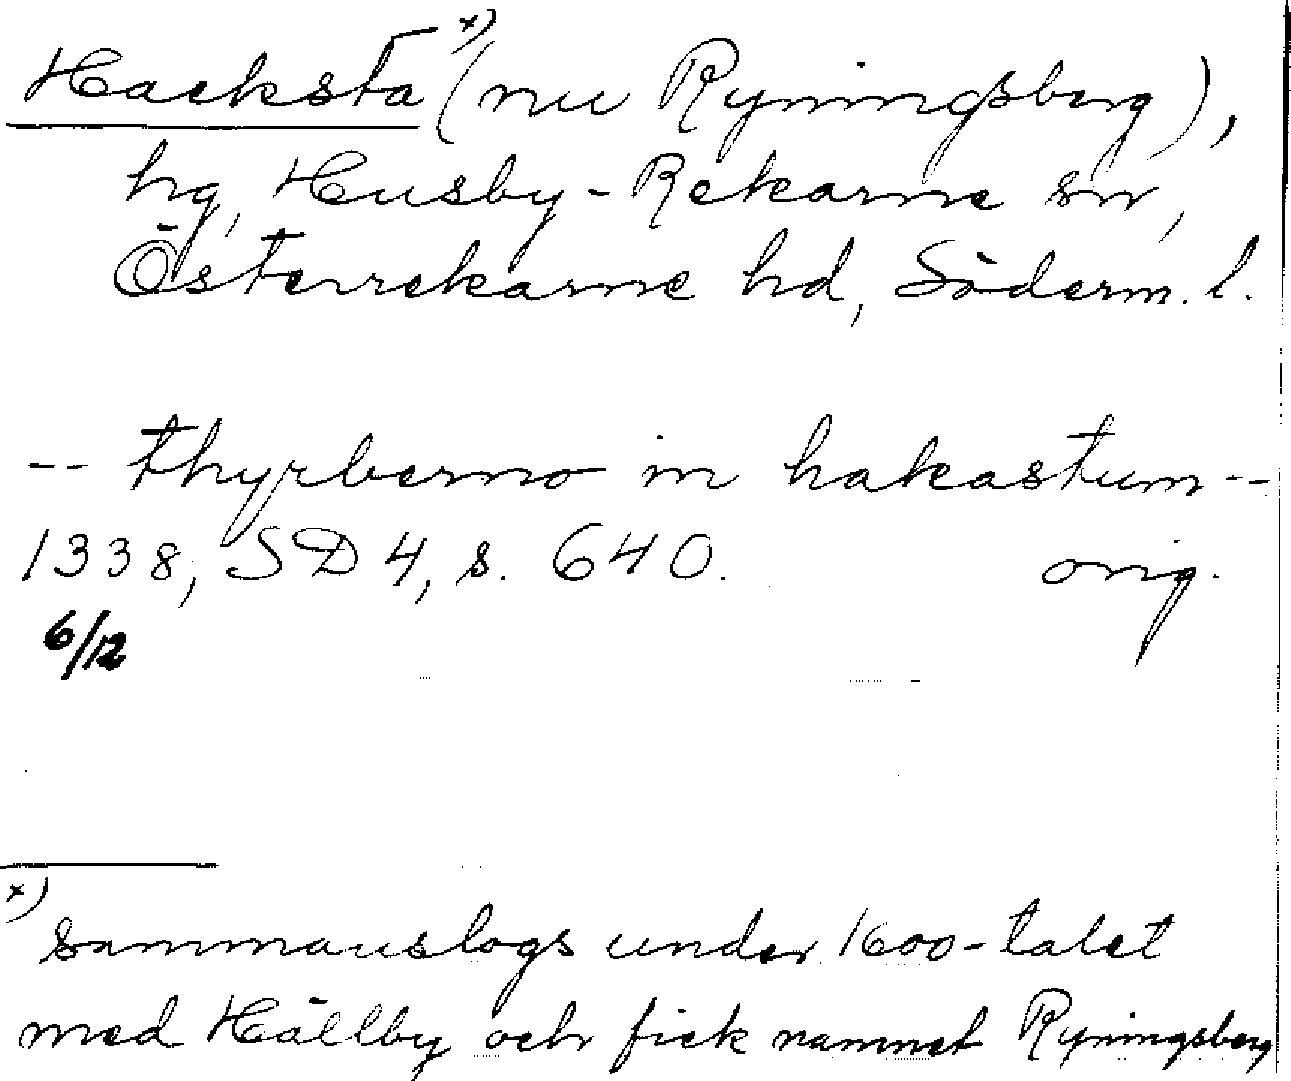 Hacksta x) (nu Ryningsberg),
hg, Husby-Rekarne sn,
Österrekarne hd, Söderm. l.
-- thyrberno in hakastum --
1338, SD 4, s. 640. orig.
6/12
x) Sammanslogs under 1600-talet
med Hällby och fick namnet Ryningsberg